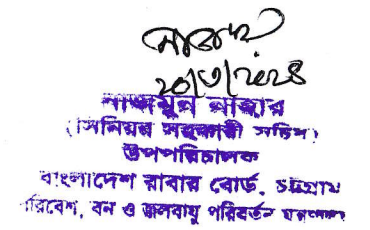 ২০/৩/২০২৪
নাজমুন নাহার
(সিনিয়র সহকারী সচিব)
উপপরিচালক
বাংলাদেশ রাবার বোর্ড, চট্টগ্রাম
পরিবেশ, বন ও জলবায়ু পরিবর্তন মন্ত্রণালয়